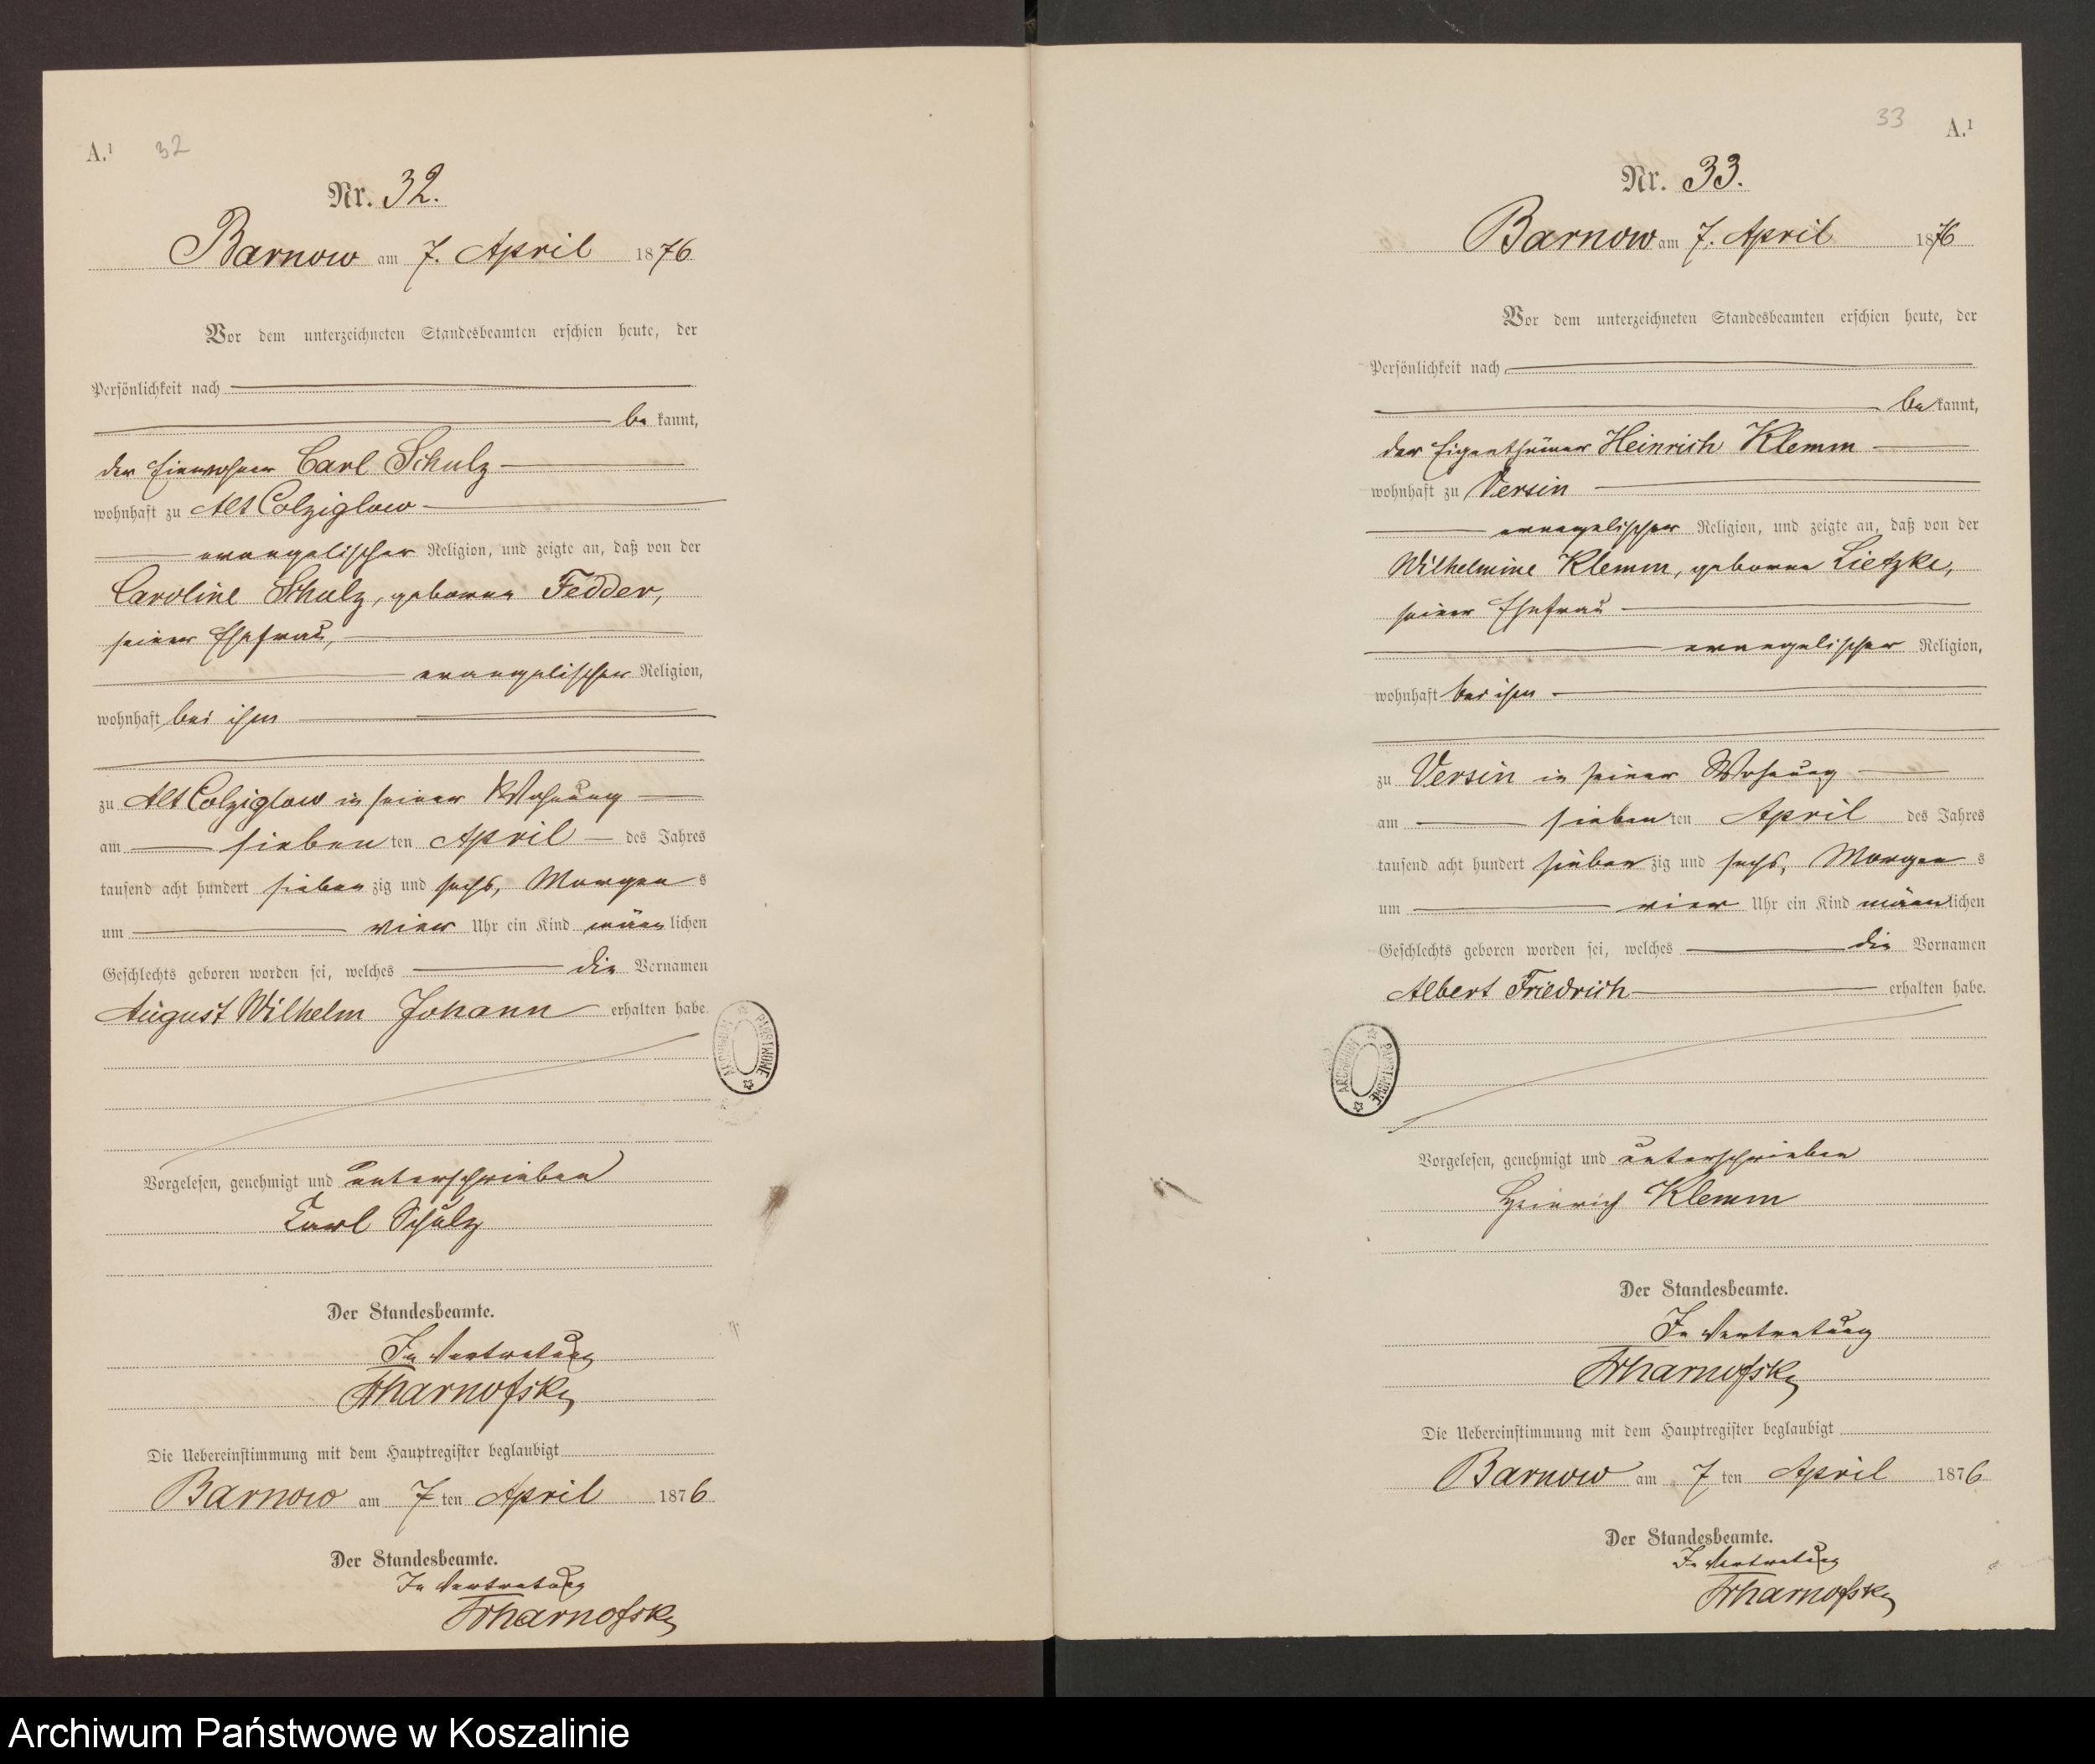 A.¹ 32
Nr. 32.
Barnow am 7. April 1876
Vor dem unterzeichneten Standesbeamten erschien heute, der
Persönlichkeit nach
be kannt,
der Einwohner Carl Schulz
wohnhaft zu Alt Colziglow
evangelischer Religion, und zeigte an, daß von der
Caroline Schulz, geborene Fedder,
seiner Ehefrau,
evangelischer Religion,
wohnhaft bei ihm
zu Alt Colziglow in seiner Wohnung
am sieben ten April des Jahres
tausend acht hundert sieben zig und sechs, Morgen s
um vier Uhr ein Kind männ lichen
Geschlechts geboren worden sei, welches die Vornamen
August Wilhelm Johann erhalten habe.
Vorgelesen, genehmigt und unterschrieben
Carl Schulz
Der Standesbeamte.
In Vertretung
Die Uebereinstimmung mit dem Hauptregister beglaubigt
Barnow am 7 ten April 1876
Der Standesbeamte.
In Vertretung
ARCHIWUM PAŃSTWOWE
33 A.¹
Nr. 33.
Barnow am 7. April 1876
Vor dem unterzeichneten Standesbeamten erschien heute, der
Persönlichkeit nach
be kannt,
der Eigenthümer Heinrich Klemm
wohnhaft zu Versin
evangelischer Religion, und zeigte an, daß von der
Wilhelmine Klemm, geborene Lietzke,
seiner Ehefrau
evangelischer Religion,
wohnhaft bei ihm
zu Versin in seiner Wohnung
am sieben ten April des Jahres
tausend acht hundert sieben zig und sechs, Morgen s
um vier Uhr ein Kind männ lichen
Geschlechts geboren worden sei, welches die Vornamen
Albert Friedrich erhalten habe.
Vorgelesen, genehmigt und unterschrieben
Heinrich Klemm
Der Standesbeamte.
In Vertretung
Die Uebereinstimmung mit dem Hauptregister beglaubigt
Barnow am 7 ten April 1876
Der Standesbeamte.
In Vertretung
ARCHIWUM PAŃSTWOWE
Archiwum Państwowe w Koszalinie